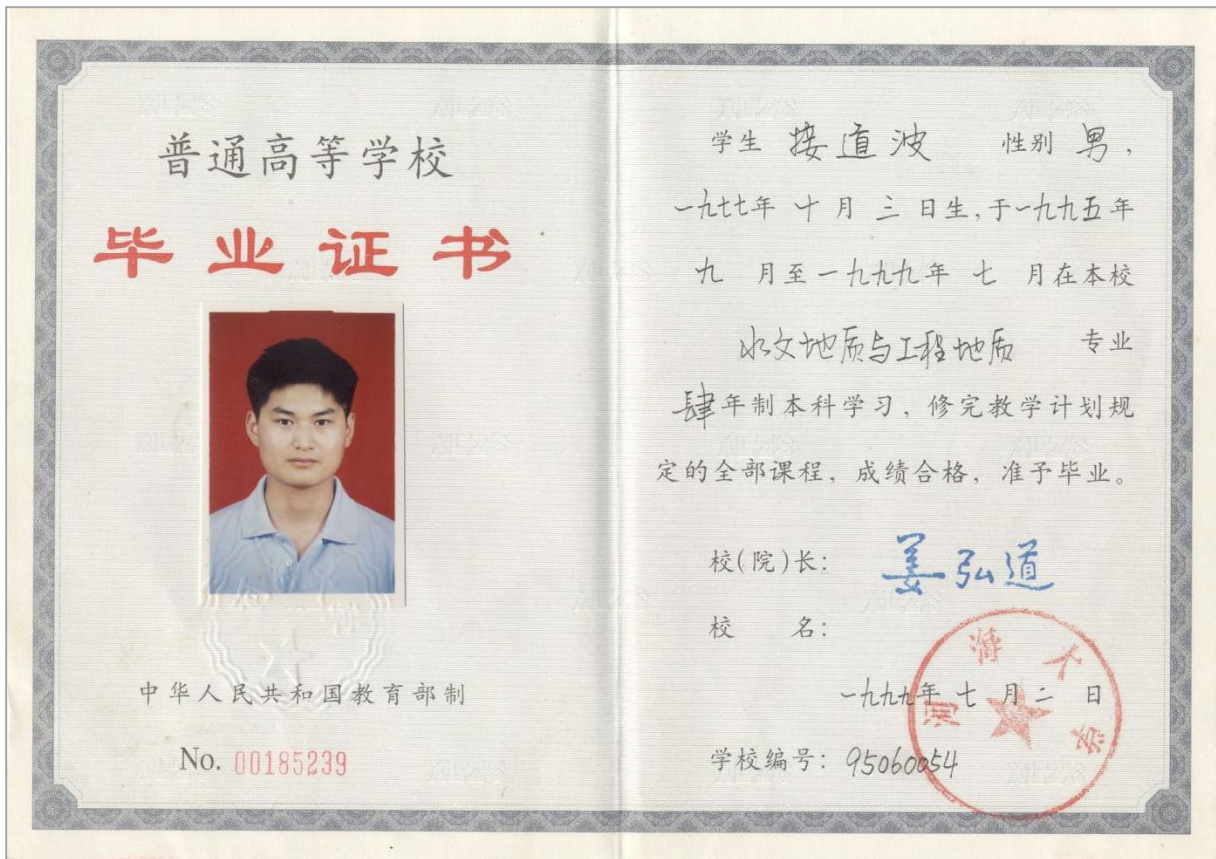 普通高等学校
毕业证书
中华人民共和国教育部制
No. 00185239
学生 接道波 性别 男,
一九七七年 十 月 三 日生,于一九九五年
九 月至一九九九年 七 月在本校
水文地质与工程地质 专业
肆年制本科学习,修完教学计划规
定的全部课程,成绩合格,准予毕业。
校(院)长: 姜弘道
校 名:
河海大学
一九九九年 七 月 二 日
学校编号: 95060054